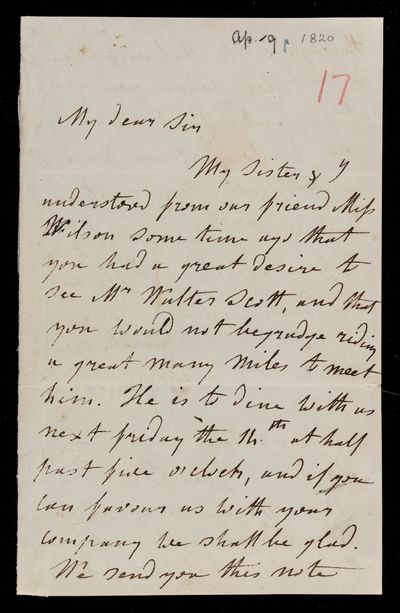 Ap. 9, 1820
17
My dear Sir
My Sister & I
understood from our friend Miss
Wilson some time ago that
you had a great desire to
see Mr Walter Scott, and that
you would not begrudge riding
a great many miles to meet
him. He is to dine with us
next friday the 14th at half
past five o'clock, and if you
can favour us with your
company we shall be glad.
We send you this note